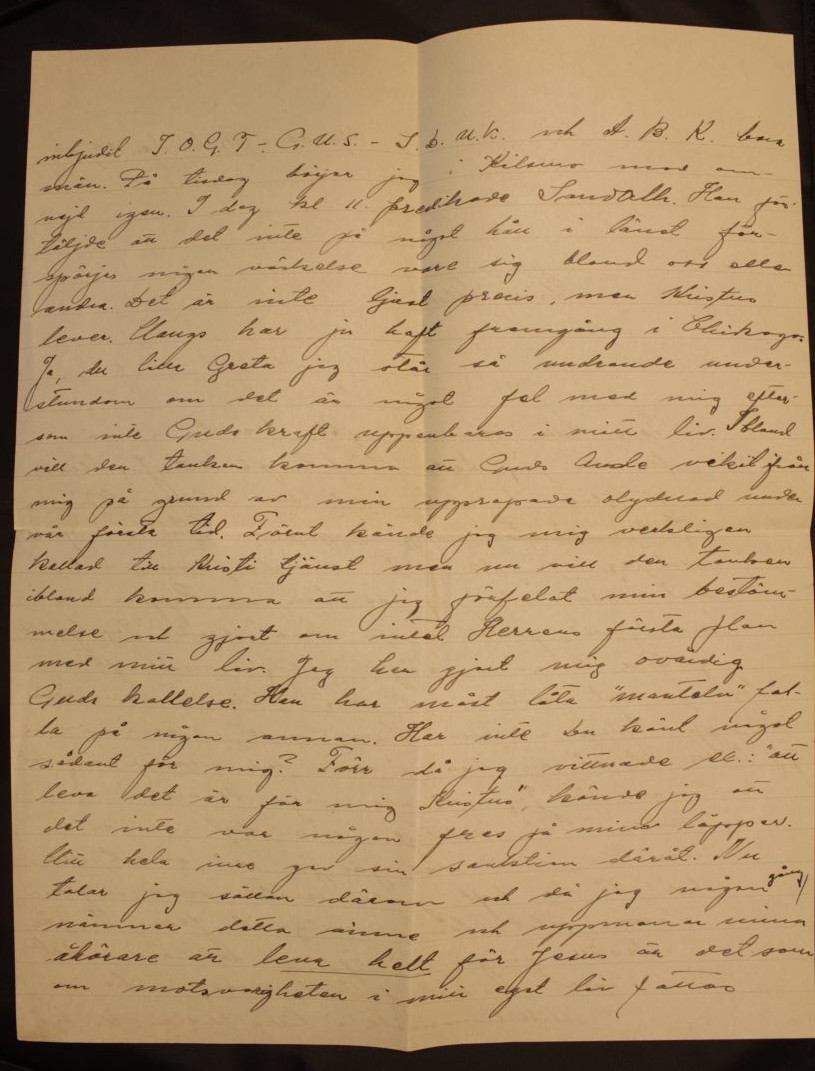 inbjudit I.O.G.T - G.U.S. - S.D.U.K. och A. B. K. bara
män. På tisdag börjar jag i Kilsmo med om-
nejd igen. I dag kl 11. predikade Sandahl. Han för-
täljde att det inte på något håll i länet för-
spörjes någon väckelse vare sig bland oss eller
andra. Det är inte ljust precis, men Kristus
lever. Haugs har ju haft framgång i Chikago.
Ja, du lilla Greta jag står så undrande under-
stundom om det är något fel med mig efter-
som inte Guds kraft uppenbaras i mitt liv. Ibland
vill den tanken komma att Guds Ande vikit från
mig på grund av min upprepade olydnad under
vår första tid. Förut kände jag mig verkligen
kallad till Kristi tjänst men nu vill den tanken
ibland komma att jag förfelat min bestäm-
melse och gjort om intet Herrens första plan
med mitt liv. Jag har gjort mig ovärdig
Guds kallelse. Han har måst låta "manteln" fal-
la på någon annan. Har inte Du känt något
sådant för mig? Förr då jag vittnade ex.: "att
leva det är för mig Kristus", kände jag att
det inte var någon fras på mina läppar.
Mitt hela inre gav sin samstäm däråt. Nu
talar jag sällan därom och då jag någon gång
nämner detta ämne och uppmanar mina
åhörare att leva helt för Jesus är det som
om motsvarigheten i mitt eget liv fattas